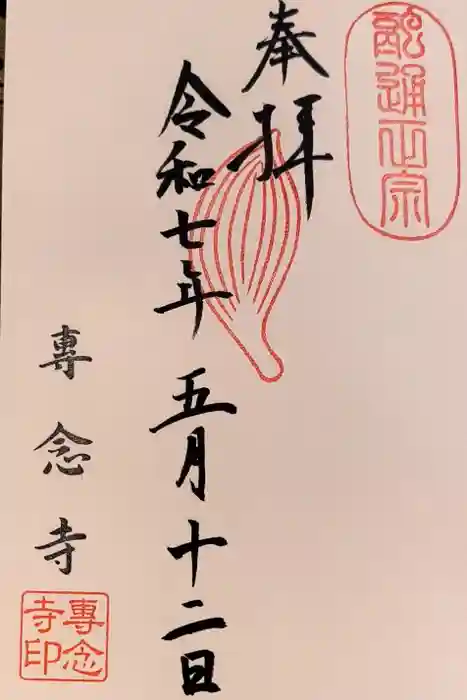 融通正宗
奉拝
令和七年五月十二日
専念寺
專念
寺印